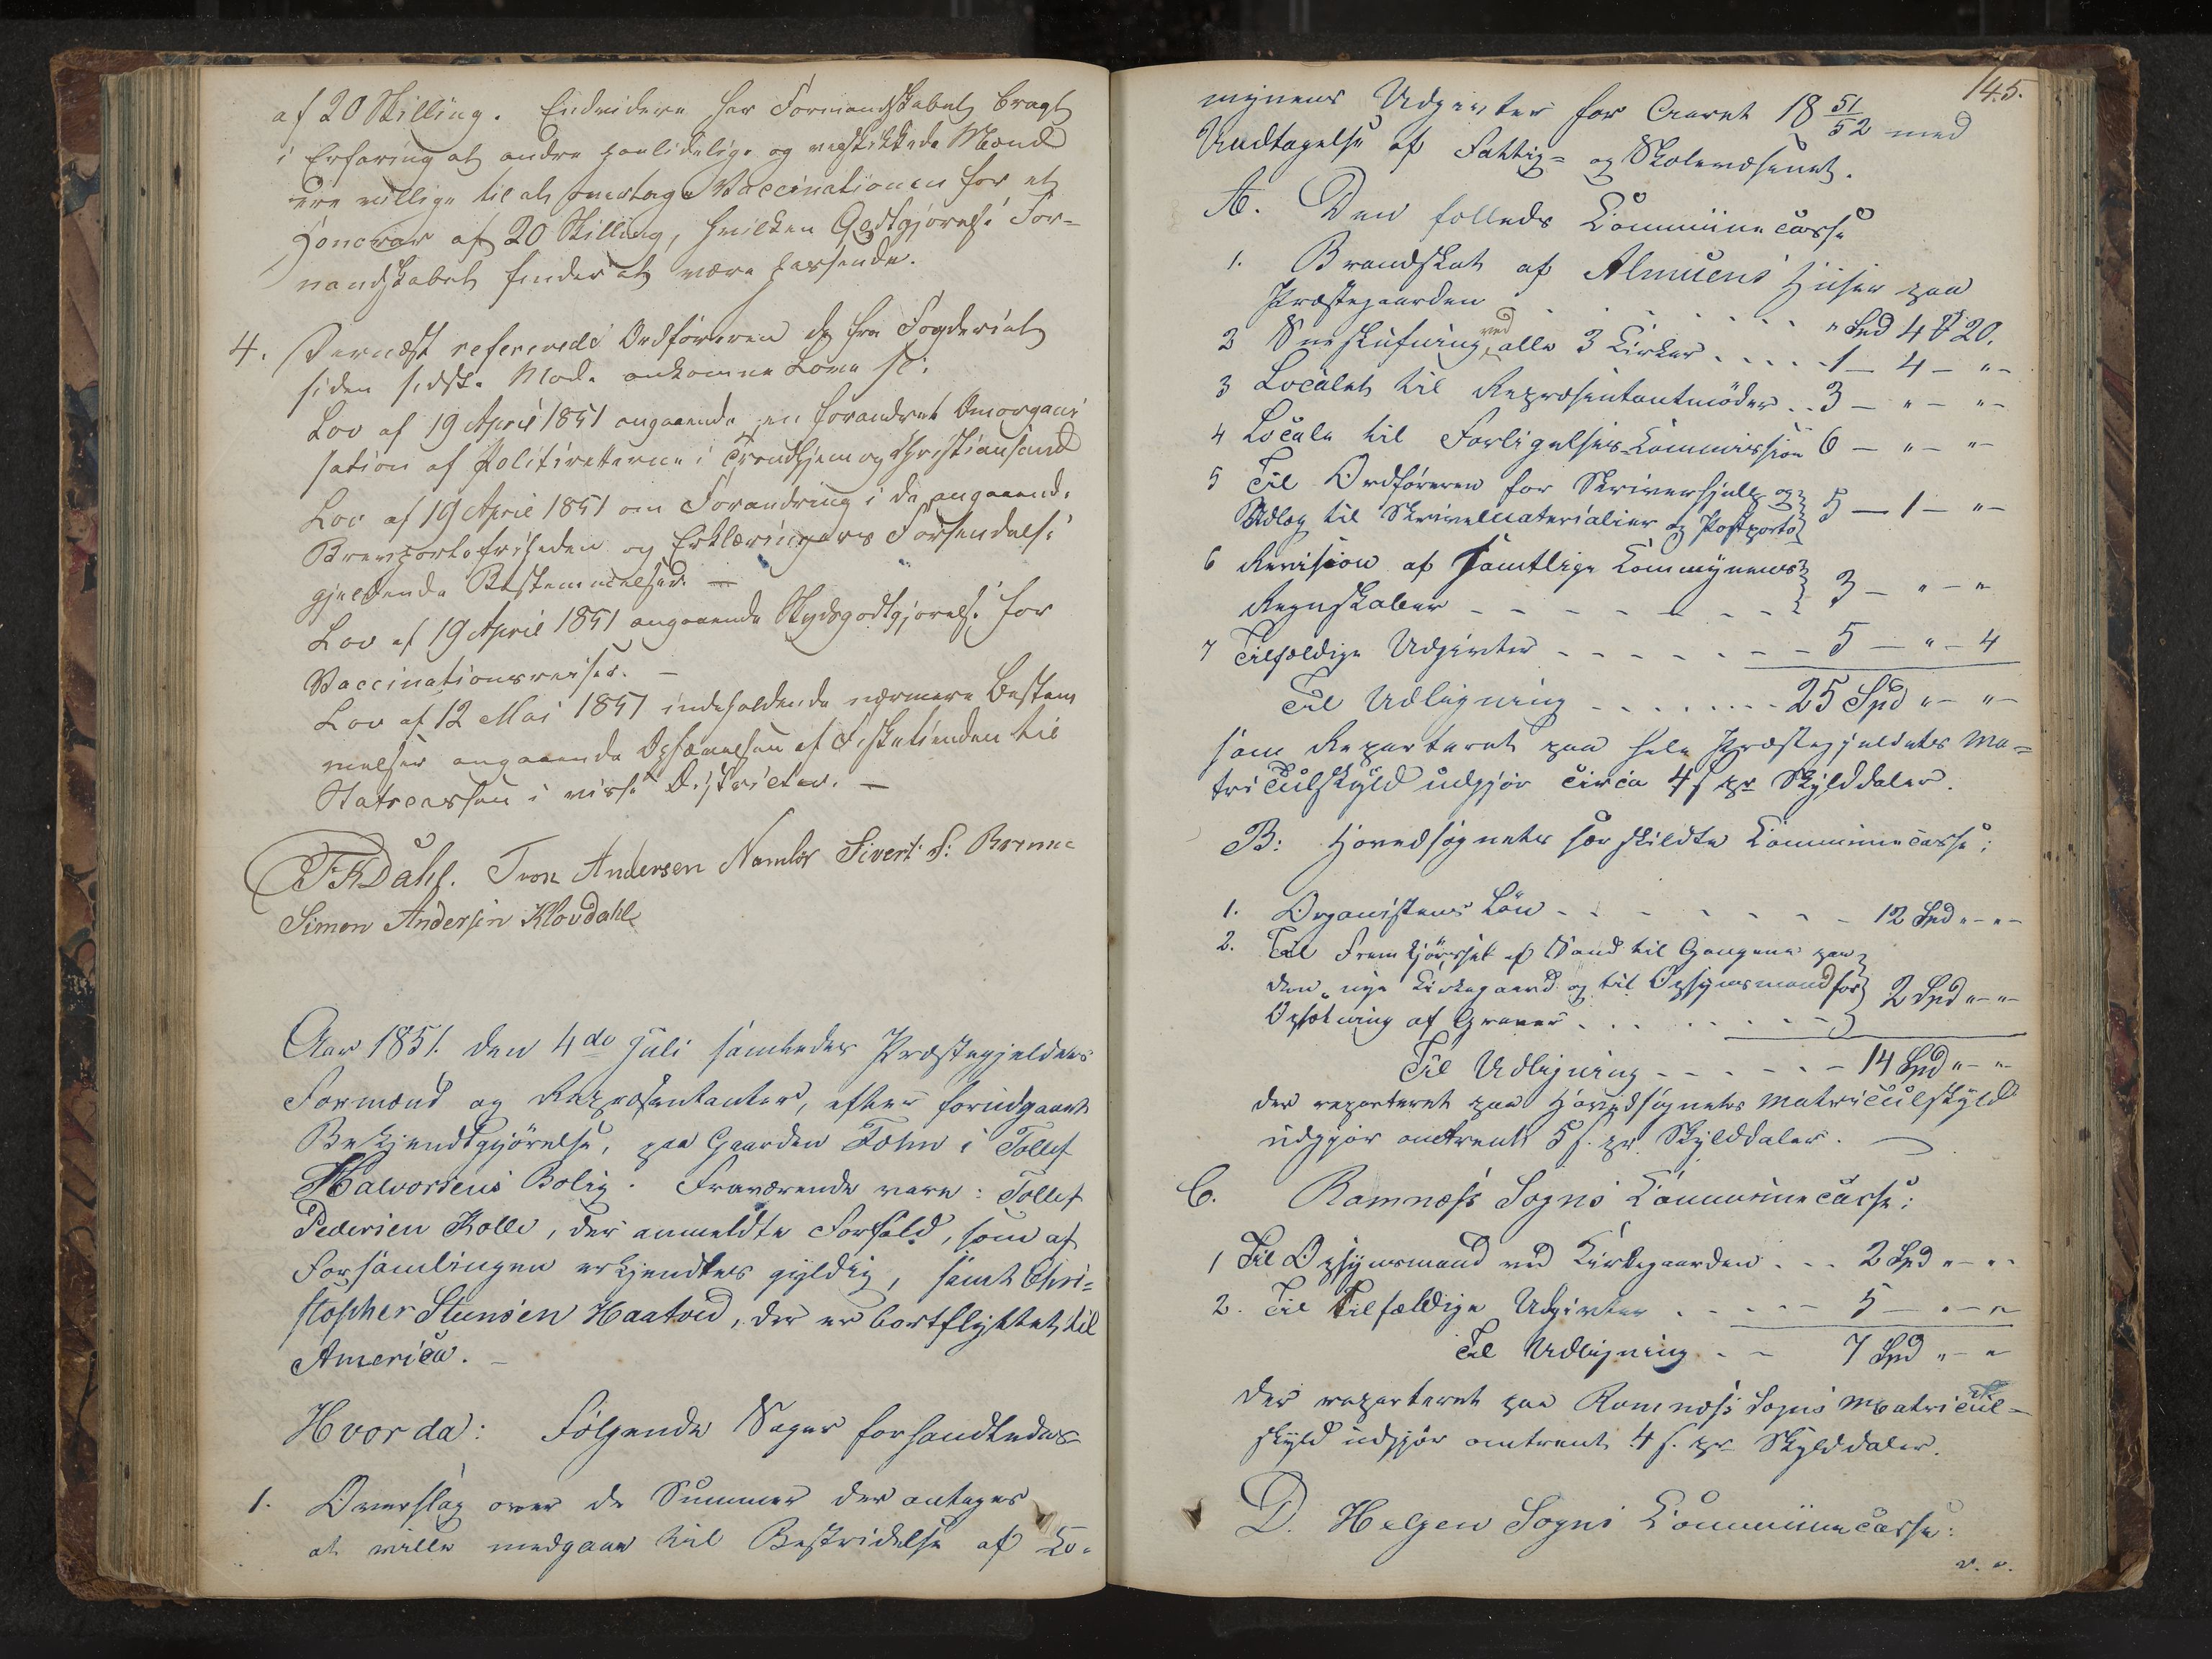 af 20 Skilling. Endvidere har Formandskabet bragt
i Erfaring at andre paalidelige og velskikkede Mænd
ere villige til at foretage Vaccinationen for et
Honorar af 20 Skilling, hvilken Godtgjørelse For-
mandskabet finder at være passende.
4. Dernæst refererede Ordføreren de fra Fogderiet
siden sidste Møde ankomne Love
Lov af 19 April 1851 angaaende en forandret Omorgani
sation af Politiretterne i Trondhjem og Christiansand
Lov af 19 April 1851 om Forandring i de angaaende
Brevportofriheden og Erklæringers Forsendelse
gjeldende Bestemmelser. —
Lov af 19 April 1851 angaaende Skydsgodtgjørelse for
Vaccinationsreiser. —
Lov af 12 Mai 1851 indeholdende nærmere Bestem
melser angaaende Opførelsen af Fisketienden til
Statscassen i visse Districter. —
Dahl. Tron Andersen Namløs Sivert S:
Simon Andersen Klovdahl
Aar 1851. den 4de Juli samledes Præstegjeldets
Formænd og Repræsentanter, efter forudgaaet
Bekjendtgjörelse, paa Gaarden Fæhn i Tollef
Halvorsens Bolig. Fraværende vare: Tollef
Pedersen Kolle, der anmeldte Forfald, som af
Forsamlingen erkjendtes gyldig, samt Chri-
stopher Stensen Haatved, der er bortflyttet til
America. —
Hvorda: Følgende Sager forhandledes
1. Overslag over de Summer der antages
at ville medgaae til Bestridelse af Co-
145.
mynens Udgivter for Aaret 18 51/52 med
Undtagelse af Fattig- og Skolevæsenet.
A. Den fælleds Communecasse
1. Brandskat af Almuens Huser paa
Præstegaarden . . . . . . . . " Spd 4 ₰ 20.
2 Sneskufning ved alle 3 Kirker . . . . . 1 — 4 — " —
3 Localet til Repræsentantmöder . . 3 — " — " —
4 Locale til Forligelses-Commission 6 — " — " —
5 Til Ordføreren for Skriverhjelp og
Udlæg til Skrivematerialier og Postporto } 5 — 1 — " —
6 Revision af samtlige Commynens
Regnskaber - - - - - - - - } 3 — " — "
7 Tilfældige Udgivter - - - - - - - 5 — " — 4
Til Udligning - - - - . . . . 25 Spd " — " —
som Reparteret paa hele Præstegjeldets Ma-
triculskyld udgjør circa 4 s pr Skylddaler.
B: Hovedsognets særskildte Communecasse:
1. Organistens Løn - - - - - - - - 12 Spd " — " —
2. Til Fremkjørsel af Sand til Gangene paa
den nye Kirkegaard og til Opsynsmand for
Opkastning af Graver . . . . . . . . } 2 Spd " — " —
Til Udligning - - - - - - - 14 Spd " — " —
der reparteret paa Hovedsognets Matriculskyld
udgjør omtrent 5 s. pr Skylddaler. —
C. Ramnæs Sogns Communecasse:
1 Til Opsynsmand ved Kirkegaarden . . . 2 Spd " — " —
2. Til Tilfældige Udgivter . . - - - - 5 — " — "
Til Udligning - - 7 Spd " — "
der reparteret paa Ramnæs Sogns Matricul-
skyld udgjør omtrent 4 s. pr Skylddaler.
D. Helgen Sogns Communecasse:
v. v.